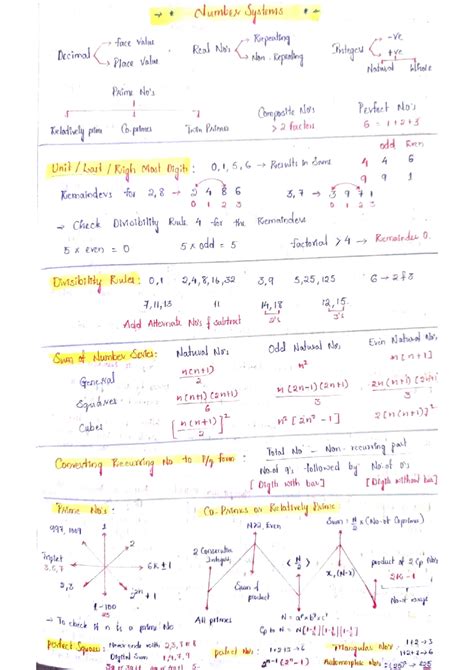 Number Systems
Decimal Face value Real No's Repeating Integers -ve
Place value Non-Repeating +ve
Natural Whole
Prime No's
Relatively prime Co-primes Twin Primes Composite No's Perfect No's
> 2 factors 6 = 1+2+3
odd Even
Unit / Last / Righ Most Digit: 0, 1, 5, 6 → Results in Same 4 4 6
9 9 1
Remainders for 2, 8 → 2 4 8 6 3, 7 → 3 9 7 1
0 1 2 3 0 1 2 3
→ Check Divisibility Rule 4 for the Remainders
5 x even = 0 5 x odd = 5 factorial > 4 → Remainder 0.
Divisibility Rules: 0, 1 2, 4, 8, 16, 32 3, 9 5, 25, 125 6 → 2 & 3
7, 11, 13 11 14, 18 12, 15
Add Alternate No's & subtract 2's 3's
Sum of Number Series: Natural No's Odd Natural No's Even Natural No's
General n(n+1)/2 n² n[n+1]
Squares n(n+1)(2n+1)/6 n(2n-1)(2n+1)/3 2n(n+1)(2n+1)/3
Cubes [n(n+1)/2]² n²[2n²-1] 2[n(n+1)]²
Converting Recurring No to P/q form: Total No - Non-recurring part
No. of 9's followed by No. of 0's
[Digth with bar] [Digth without bar]
Prime No's: Co-Primes or Relatively Prime
997, 1009 1 N≥2, Even Sum = N/2 x (No. of Coprimes)
Triplet 2 Consecutive
3,5,7 6k±1 Integers (N/2) x, (N-x) product of 2 Cp No's
2,3 Sum of
2^n + 1 product No. of ways
1-100
25 All primes N = a^p b^q c^r
→ To check if n is a prime No Cp to N =
Perfect Squares: Never ends with 2,3,7,8 Perfect No's: 1+2+3 → 6 Triangular No's: 1+2 → 3
Digital Sum 1,4,7,9 2^n-1 (2^n-1) Automorphic No's: